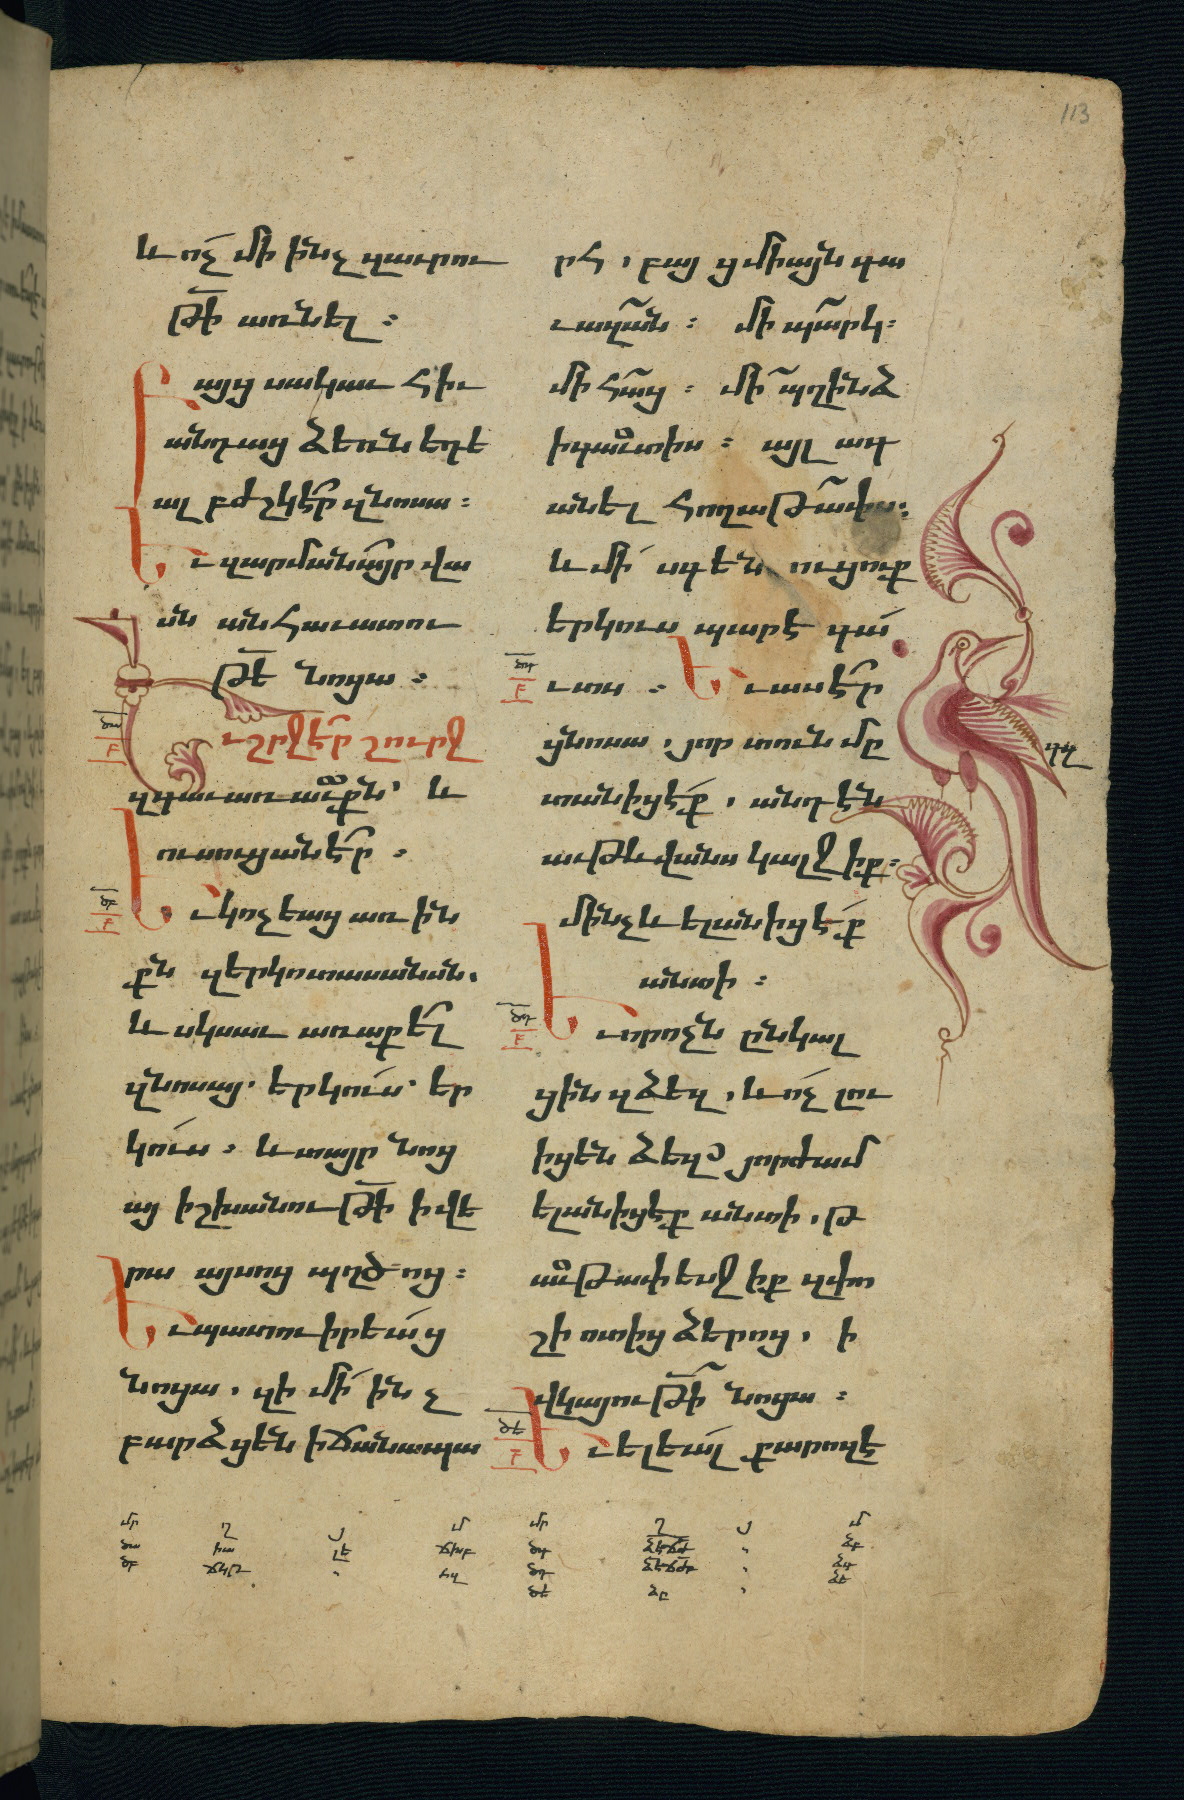 113
և ոչ մի ինչ զաւրու
թի առնել ։
Բայց սակաւ հիւ
անդաց ձեռն եդե
ալ բժշկէր զնոսա ։
Եւ զարմանայր վա
սն անհաւատու
թե նոցա ։
Եւ շրջէր շուրջ
զգաւառաւքն՝ և
ուսուցանէր ։
Եւ կոչեաց առ ին
քն զերկոտասանսն.
և սկսաւ առաքել
զնոսայ՝ երկուս՝ եր
կուս ։ և տայր նոց
այ իշխանութի ի վե
րա այսոց պղծոց ։
Եւ պատուիրեաց
նոցա , զի մի ինչ
բարձցեն ի ճանապա
րհ , բայց միայն գա
ւազան ։ մի պարկ ։
մի հաց ։ մի պղինձ
ի գաւտիս ։ այլ ագ
անել հողաթափս ։
և մի զգենուցուք
երկուս պարէգաւ
տս ։ Եւ ասէր
ցնոսա , յոր տուն մը
տանիցեք , անդէն
աւթևվանս կալջիք ։
մինչև ելանիցեք
անտի ։
Եւ որոչն ընկալ
ցին զձեզ , և ոչ լու
իցեն ձեզ՝ յորժամ
ելանիցեք անտի , թ
աւթափեսջիք զփո
շի ոտից ձերոց , ի
վկայութի նոցա ։
Եւ ելեալ քարոզէ